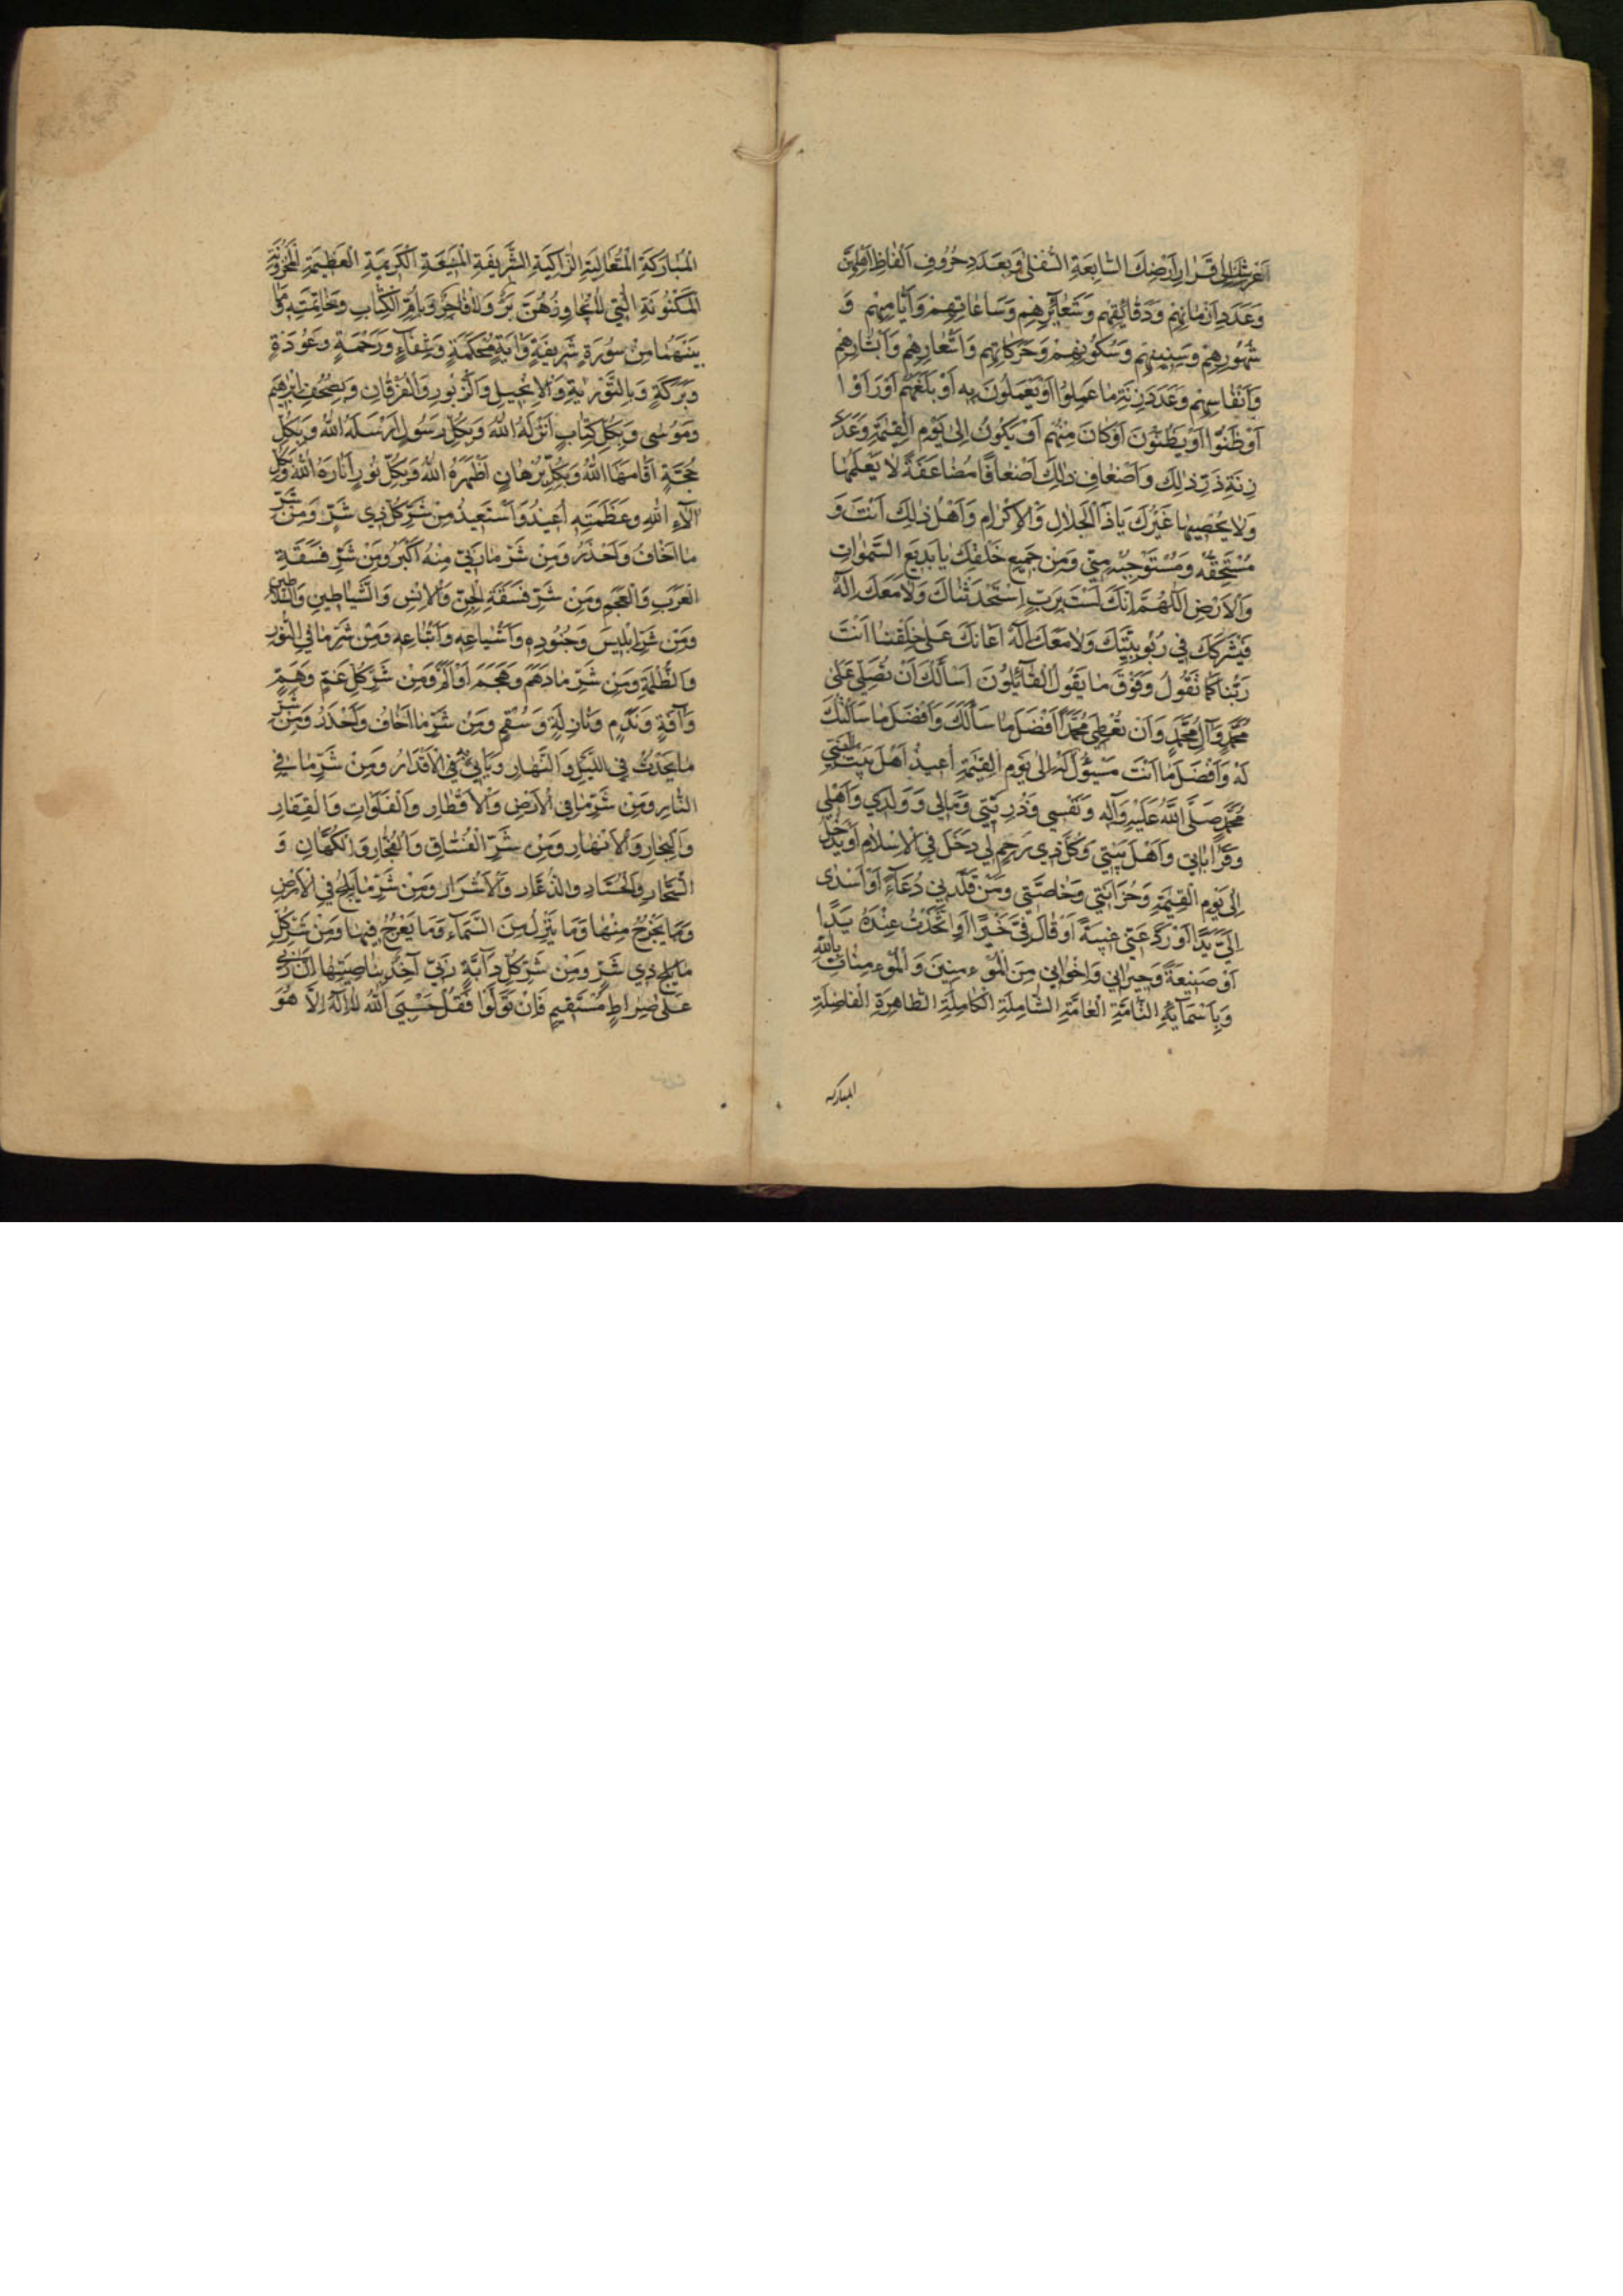 عَرْشِكَ اِلٰى قَرَارِ اَرْضِكَ السَّابِعَةِ السُّفْلٰى وَبِعَدَدِ حُرُوفِ اَلْفَاظِ اَهْلِهِنَّ
وَعَدَدِ اَزْمَانِهِمْ وَدَقَائِقِهِمْ وَشَعَائِرِهِمْ وَسَاعَاتِهِمْ وَاَيَّامِهِمْ وَ
شُهُورِهِمْ وَسِنِينِهِمْ وَسُكُونِهِمْ وَحَرَكَاتِهِمْ وَاَشْعَارِهِمْ وَاَبْشَارِهِمْ
وَاَنْفَاسِهِمْ وَعَدَدِ زِنَةِ مَا عَمِلُوا اَوْ يَعْمَلُونَ بِهِ اَوْ بَلَغَهُمْ اَوْ رَاَوْا
اَوْ ظَنُّوا اَوْ يَظُنُّونَ اَوْ كَانَ مِنْهُمْ اَوْ يَكُونُ اِلٰى يَوْمِ الْقِيٰمَةِ وَعَدَدِ
زِنَةِ ذَرِّ ذٰلِكَ وَاَضْعَافِ ذٰلِكَ اَضْعَافًا مُضَاعَفَةً لَا يَعْلَمُهَا
وَلَا يُحْصِيهَا غَيْرُكَ يَا ذَا الْجَلَالِ وَالْاِكْرَامِ وَاَهْلُ ذٰلِكَ اَنْتَ وَ
مُسْتَحِقُّهُ وَمُسْتَوْجِبُهُ مِنِّي وَمِنْ جَمِيعِ خَلْقِكَ يَا بَدِيعَ السَّمٰوَاتِ
وَالْاَرْضِ اَللّٰهُمَّ اِنَّكَ لَسْتَ بِرَبٍّ اِسْتَحْدَثْنَاكَ وَلَا مَعَكَ اِلٰهٌ
فَيَشْرَكَكَ فِي رُبُوبِيَّتِكَ وَلَا مَعَكَ اِلٰهٌ اَعَانَكَ عَلٰى خَلْقِنَا اَنْتَ
رَبُّنَا كَمَا نَقُولُ وَفَوْقَ مَا يَقُولُ الْقَائِلُونَ اَسْاَلُكَ اَنْ تُصَلِّيَ عَلٰى
مُحَمَّدٍ وَآلِ مُحَمَّدٍ وَاَنْ تُعْطِيَ مُحَمَّدًا اَفْضَلَ مَا سَاَلَكَ وَاَفْضَلَ مَا سَاَلْتُكَ
لَهُ وَاَفْضَلَ مَا اَنْتَ مَسْئُولٌ لَهُ اِلٰى يَوْمِ الْقِيٰمَةِ اُعِيذُ اَهْلَ بَيْتِ النَّبِيِّ
مُحَمَّدٍ صَلَّى اللّٰهُ عَلَيْهِ وَآلِهِ وَنَفْسِي وَذُرِّيَّتِي وَمَالِي وَوَلَدِي وَاَهْلِي
وَقَرَابَاتِي وَاَهْلَ بَيْتِي وَكُلَّ ذِي رَحِمٍ لِي دَخَلَ فِي الْاِسْلَامِ اَوْ يَدْخُلُ
اِلٰى يَوْمِ الْقِيٰمَةِ وَحُزَانَتِي وَخَاصَّتِي وَمَنْ قَلَّدَنِي دُعَاءً اَوْ اَسْدٰى
اِلَيَّ يَدًا اَوْ رَدَّ عَنِّي غِيبَةً اَوْ قَالَ فِيَّ خَيْرًا اَوِ اتَّخَذْتُ عِنْدَهُ يَدًا
اَوْ صَنِيعَةً وَجِيرَانِي وَاِخْوَانِي مِنَ الْمُؤْمِنِينَ وَالْمُؤْمِنَاتِ بِاللّٰهِ
وَبِاَسْمَائِهِ التَّامَّةِ الْعَامَّةِ الشَّامِلَةِ الْكَامِلَةِ الطَّاهِرَةِ الْفَاضِلَةِ
المباركه
الْمُبَارَكَةِ الْمُتَعَالِيَةِ الزَّاكِيَةِ الشَّرِيفَةِ الْمَنِيعَةِ الْكَرِيمَةِ الْعَظِيمَةِ الْمَخْزُونَةِ
الْمَكْنُونَةِ الَّتِي لَا يُجَاوِزُهُنَّ بَرٌّ وَلَا فَاجِرٌ وَبِاُمِّ الْكِتَابِ وَخَاتِمَتِهِ وَمَا
بَيْنَهُمَا مِنْ سُورَةٍ شَرِيفَةٍ وَآيَةٍ مُحْكَمَةٍ وَشِفَاءٍ وَرَحْمَةٍ وَعُوذَةٍ
وَبَرَكَةٍ وَبِالتَّوْرٰيةِ وَالْاِنْجِيلِ وَالزَّبُورِ وَالْفُرْقَانِ وَبِصُحُفِ اِبْرٰهِيمَ
وَمُوسٰى وَبِكُلِّ كِتَابٍ اَنْزَلَهُ اللّٰهُ وَبِكُلِّ رَسُولٍ اَرْسَلَهُ اللّٰهُ وَبِكُلِّ
حُجَّةٍ اَقَامَهَا اللّٰهُ وَبِكُلِّ بُرْهَانٍ اَظْهَرَهُ اللّٰهُ وَبِكُلِّ نُورٍ اَنَارَهُ اللّٰهُ وَبِكُلِّ
آلَاءِ اللّٰهِ وَعَظَمَتِهِ اُعِيذُ وَاَسْتَعِيذُ مِنْ شَرِّ كُلِّ ذِي شَرٍّ وَمِنْ شَرِّ
مَا اَخَافُ وَاَحْذَرُ وَمِنْ شَرِّ مَا رَبِّي مِنْهُ اَكْبَرُ وَمِنْ شَرِّ فَسَقَةِ
الْعَرَبِ وَالْعَجَمِ وَمِنْ شَرِّ فَسَقَةِ الْجِنِّ وَالْاِنْسِ وَالشَّيَاطِينِ وَالسَّلَاطِينِ
وَمِنْ شَرِّ اِبْلِيسَ وَجُنُودِهِ وَاَشْيَاعِهِ وَاَتْبَاعِهِ وَمِنْ شَرِّ مَا فِي النُّورِ
وَالظُّلْمَةِ وَمِنْ شَرِّ مَا دَهَمَ وَهَجَمَ اَوْ اَلَمَّ وَمِنْ شَرِّ كُلِّ غَمٍّ وَهَمٍّ
وَآفَةٍ وَنَدَمٍ وَنَازِلَةٍ وَسُقْمٍ وَمِنْ شَرِّ مَا اَخَافُ وَاَحْذَرُ وَمِنْ شَرِّ
مَا يَحْدُثُ فِي اللَّيْلِ وَالنَّهَارِ وَيَاْتِي بِهِ فِي الْاَقْدَارُ وَمِنْ شَرِّ مَا فِي
النَّارِ وَمِنْ شَرِّ مَا فِي الْاَرْضِ وَالْاَقْطَارِ وَالْفَلَوَاتِ وَالْقِفَارِ
وَالْبِحَارِ وَالْاَنْهَارِ وَمِنْ شَرِّ الْفُسَّاقِ وَالْفُجَّارِ وَالْكُهَّانِ وَ
السُّحَّارِ وَالْحُسَّادِ وَالذُّعَّارِ وَالْاَشْرَارِ وَمِنْ شَرِّ مَا يَلِجُ فِي الْاَرْضِ
وَمَا يَخْرُجُ مِنْهَا وَمَا يَنْزِلُ مِنَ السَّمَاءِ وَمَا يَعْرُجُ فِيهَا وَمِنْ شَرِّ كُلِّ
ذِي شَرٍّ وَمِنْ شَرِّ كُلِّ دَآبَّةٍ رَبِّي آخِذٌ بِنَاصِيَتِهَا اِنَّ رَبِّي
عَلٰى صِرَاطٍ مُسْتَقِيمٍ فَاِنْ تَوَلَّوْا فَقُلْ حَسْبِيَ اللّٰهُ لَا اِلٰهَ اِلَّا هُوَ